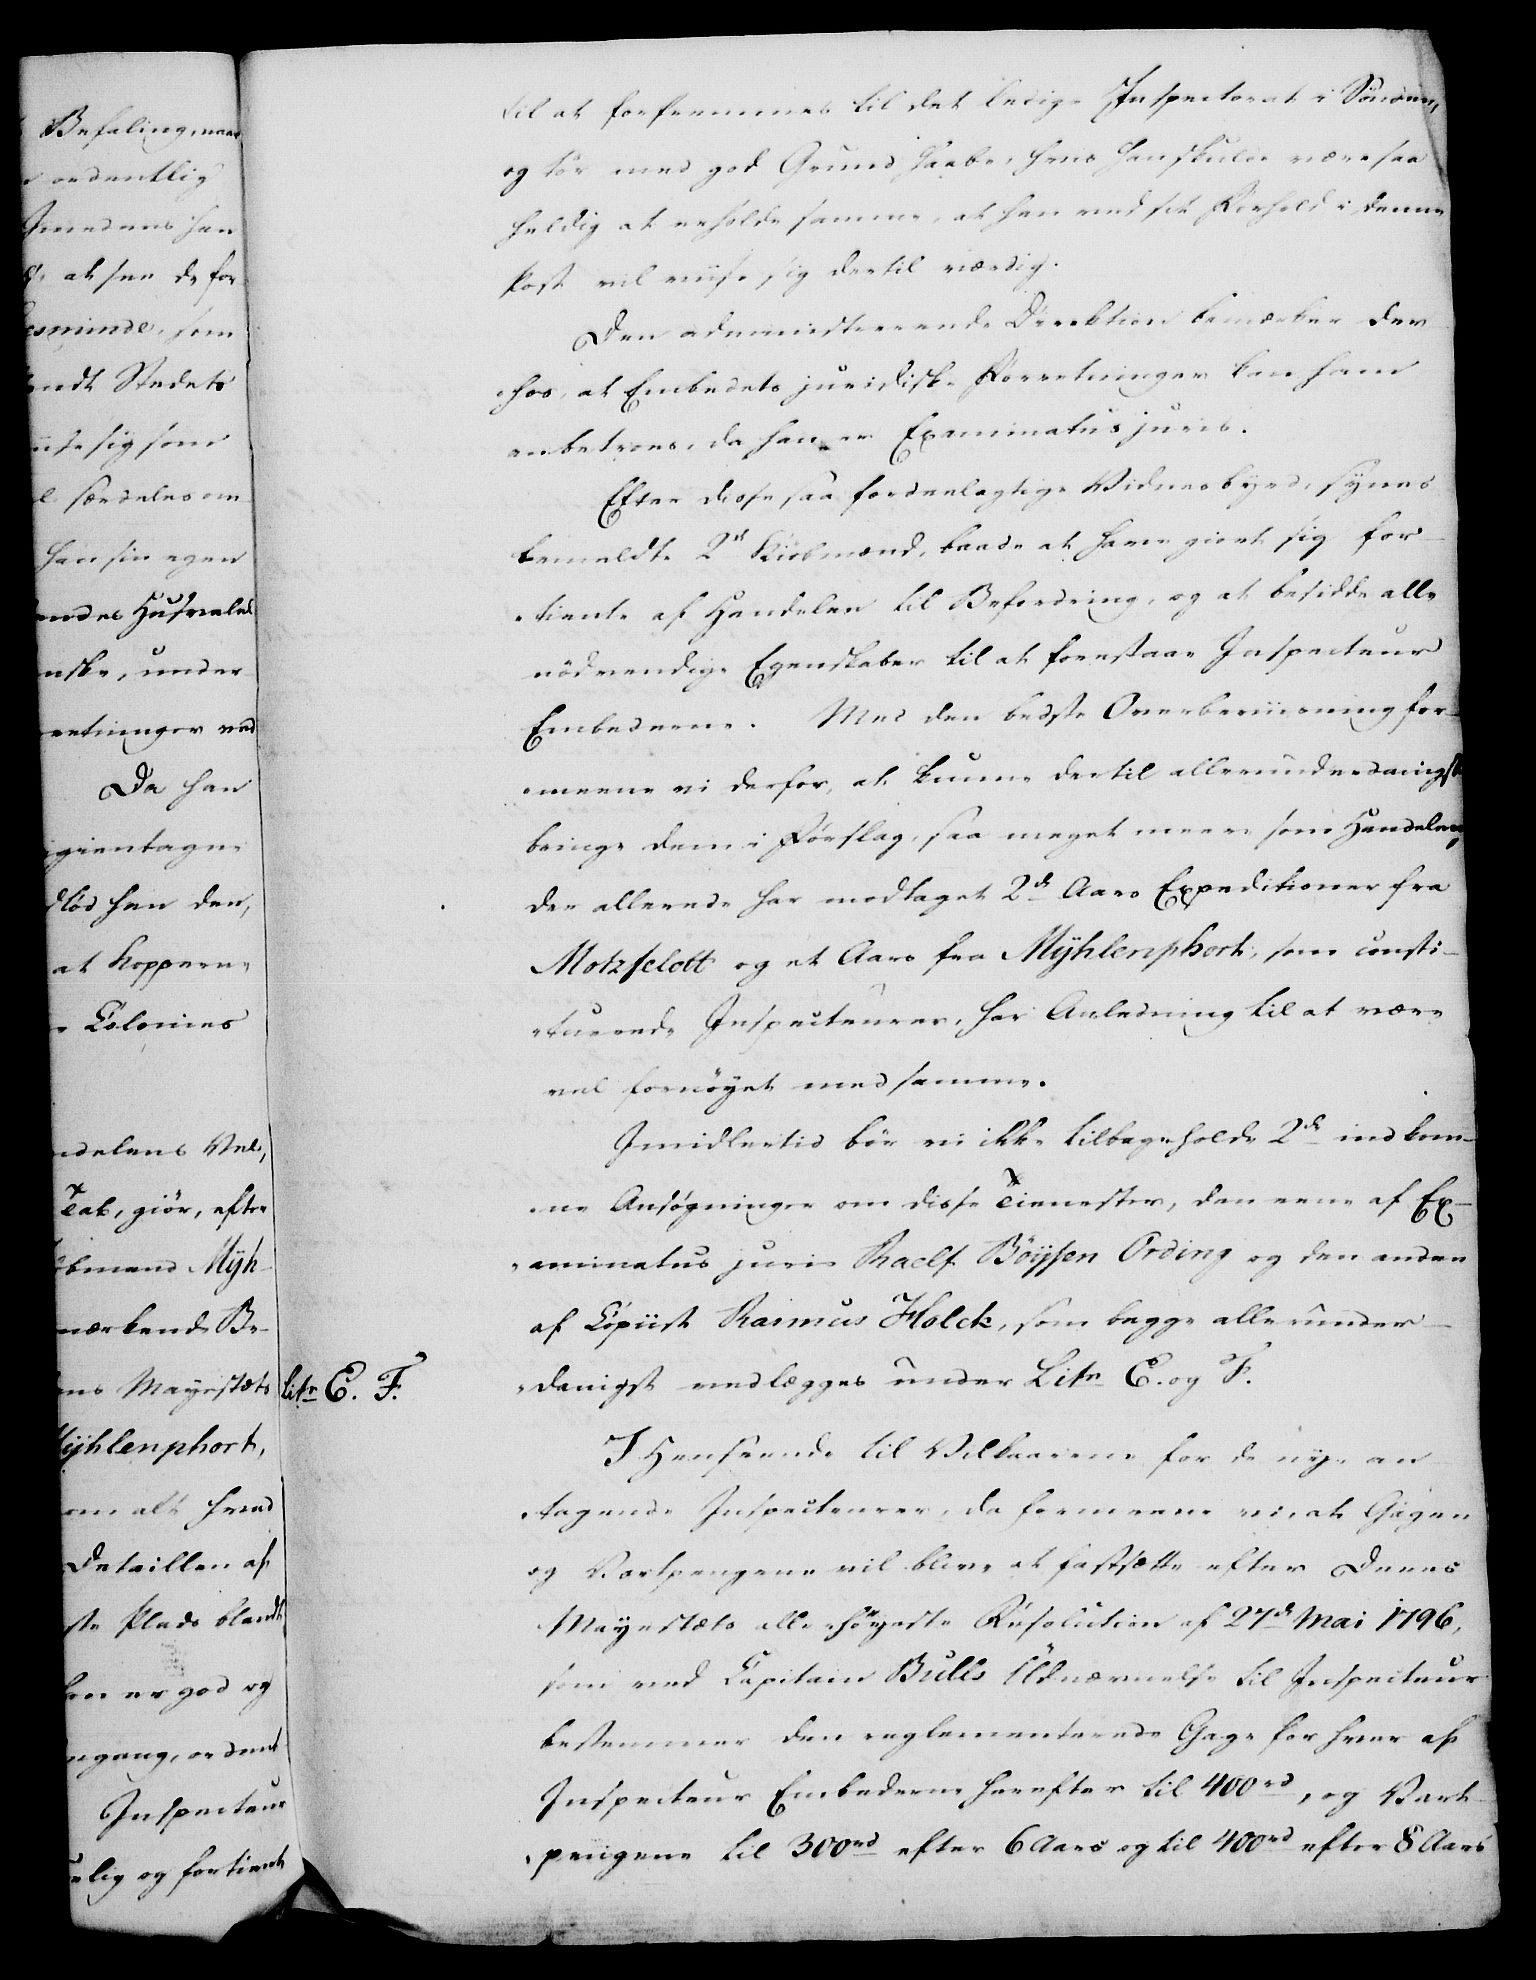 Befaling, naar
ordentlig
Imedens han
at see de for
esminde, som
endt Stedets
viise sig som
særdeles om
han sin egen
endes Huusvalel
nske, under
retninger ved
Da han
igientagne
dløs han den,
at Kopperne
Colonies
ndelens Vel,
Tab, giör, efter
öbmand Myh-
mærkende Be-
ns Mayestæts
Mÿhlenphort,
om alt hvad
Detaillen af
ste Plads blandt
han er god og
ngang, ordent
Inspecteur
elig og fortient
til at forfremmes til det ledige Inspectorat i Sönden,
og tör med god Grund haabe, hvis han skulde være saa
heldig at erholde samme, at han ved sit Forhold i denne
Post vil viise sig dertil værdig.
Den administreerende Direktion bemærker der-
hos, at Embedets juridiske Forretninger kan ham
anbetroes, da han er Examinatus juris.
Efter disse saa fordeelagtige Vidnesbyrd, synes
bemeldte 2de Kiöbmænd, baade at have giort sig for-
tiente af Handelen til Befordring, og at besidde alle
nödvendige Egenskaber til at forestaae Inspecteur
Embederne. Med den bedste Overbeviisning for-
meene vi derfor, at kunne dertil allerunderdanigst
bringe dem i Forslag, saa meget meere som Handelen,
der allerede har modtaget 2de Aars Expeditioner fra
Motzfeldt og et Aars fra Mÿhlenphort, som consti-
tuerede Inspecteurer, har Anledning til at være
vel fornöyet med samme.
Imidlertid bör vi ikke tilbageholde 2de indkom-
ne Ansøgninger om disse Tienester, den eene af Ex-
aminatus juris Raelf Böÿsen Ording og den anden
af Copiist Rasmus Holck, som begge allerunder-
danigst vedlægges under Litr E. og F.
Litr E. F.
I Henseende til Vilkaarene for de nye an-
tagende Inspecteurer, da formeene vi, at Gagen
og Vartpengene vil blive at fastsætte efter Deres
Mayestæts allerhöyeste Resolution af 27de Mai 1796,
som ved Capitain Bulls Udnævnelse til Inspecteur
bestemmer den reglementerede Gage for hver af
Inspecteur Embederne herefter til 400rd, og Vart-
pengene til 300rd efter 6 Aars og til 400rd efter 8 Aars